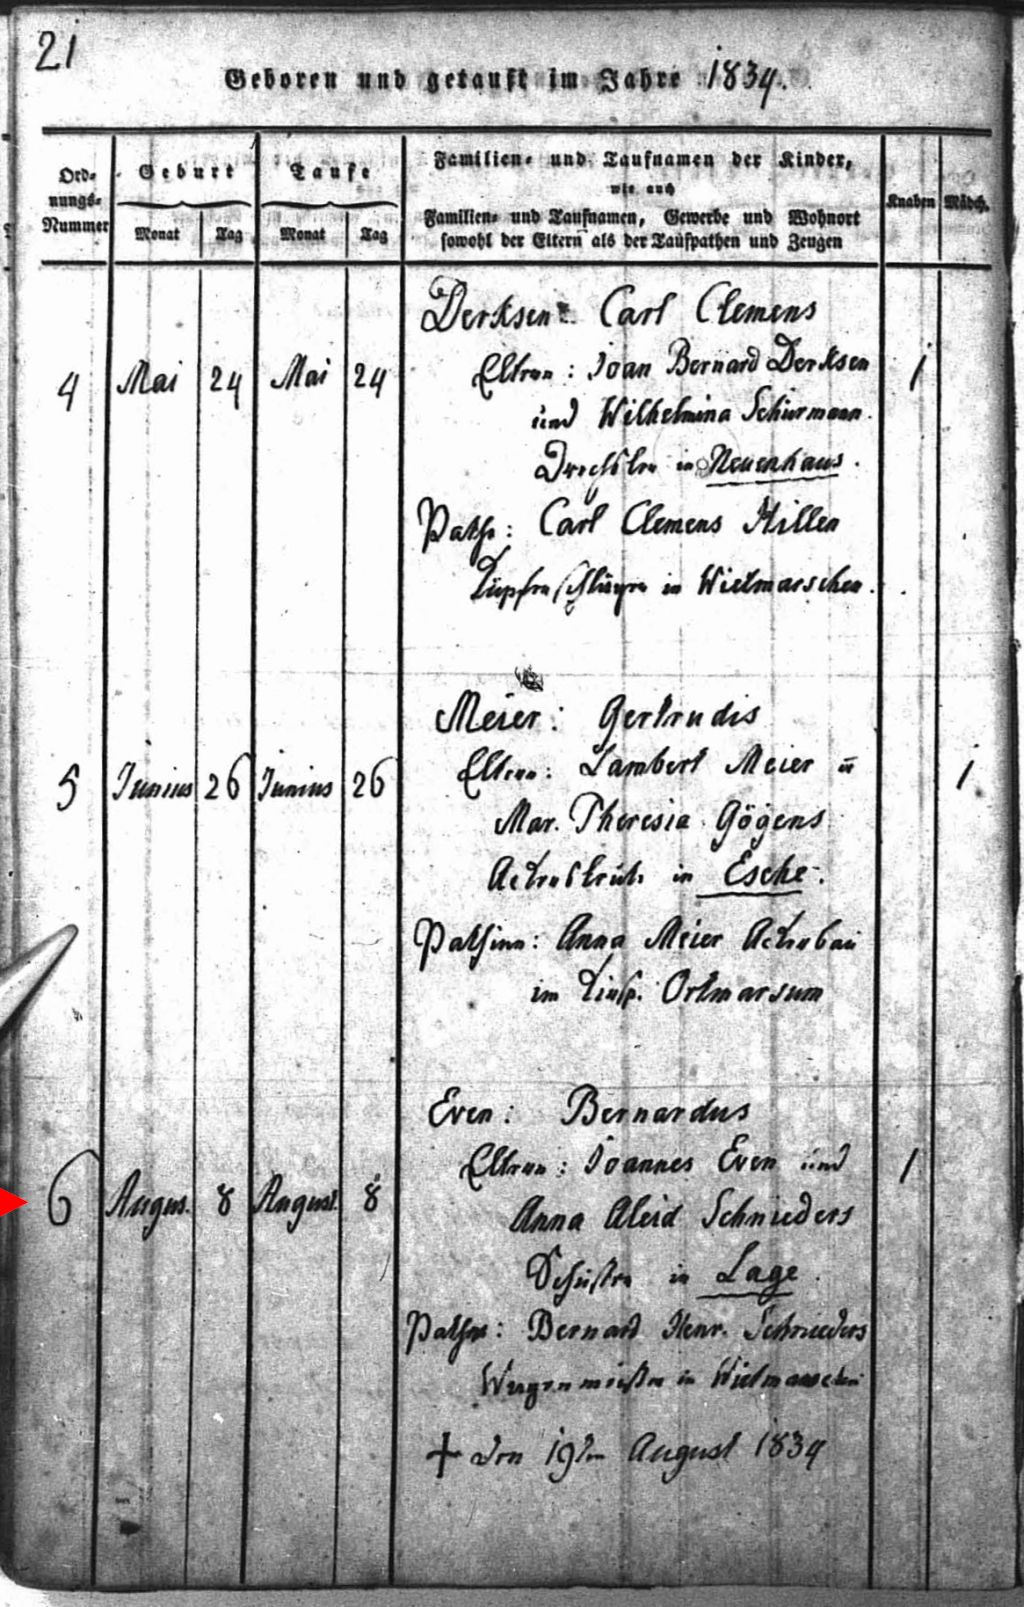 21
Geboren und getauft im Jahre 1834.
Ord-
nungs-
Nummer
Geburt
Taufe
Monat Tag Monat Tag
Familien- und Taufnamen der Kinder,
wie auch
Familien- und Taufnamen, Gewerbe und Wohnort
sowohl der Eltern als der Taufpathen und Zeugen
Knaben Mädch.
Derksen: Carl Clemens
4 Mai 24 Mai 24 Eltern: Joan Bernard Derksen 1
und Wilhelmina Schürmann.
Drechsler in Neuenhaus.
Pathe: Carl Clemens Hillen
Kupferschläger in Wietmarschen.
Meier: Gertrudis
5 Junius 26 Junius 26 Eltern: Lambert Meier u 1
Mar. Theresia Gögens
Ackersleute in Esche.
Pathinn: Anna Meier Ackerbau
im Kirsp. Ortmarsum
Even: Bernardus
6 Augus. 8 August. 8 Eltern: Joannes Even und 1
Anna Aleid Schnieders
Schuster in Lage.
Pathe: Bernard Henr. Schnieders
Wagenmeister in Wietmarschen
+ den 19ten August 1834